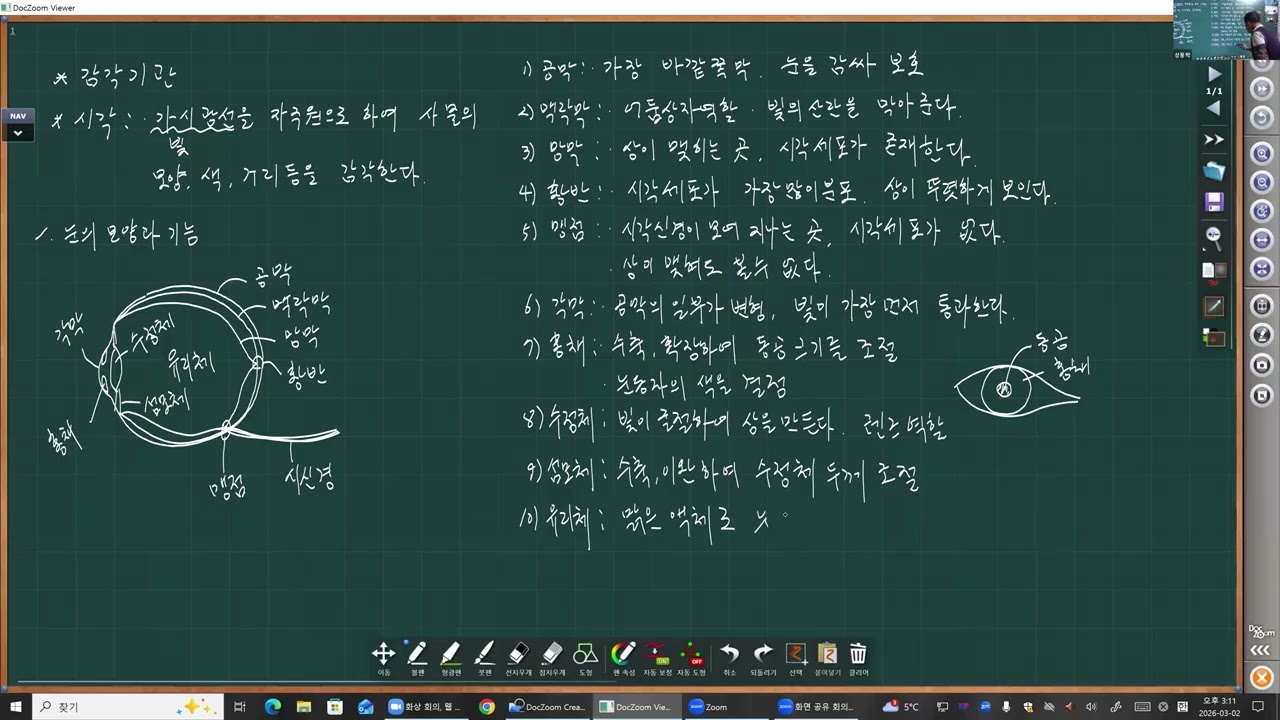 DocZoom Viewer
1
* 감각기관
* 시각 : 가시광선을 자극원으로 하여 사물의
빛
모양, 색, 거리등을 감각한다.
1. 눈의 모양과 기능
공막
맥락막
망막
황반
각막
수정체
유리체
섬모체
홍채
맹점
시신경
1) 공막 : 가장 바깥쪽 막. 눈을 감싸 보호
2) 맥락막 : 어둠상자역할. 빛의 산란을 막아준다.
3) 망막 : 상이 맺히는 곳, 시각세포가 존재한다.
4) 황반 : 시각세포가 가장많이분포. 상이 뚜렷하게 보인다.
5) 맹점 : 시각신경이 모여 지나는 곳, 시각세포가 없다.
상이 맺혀도 볼수 없다.
6) 각막 : 공막의 일부가 변형, 빛이 가장 먼저 통과한다.
7) 홍채 : 수축, 확장하여 동공 크기를 조절
눈동자의 색을 결정
8) 수정체 : 빛이 굴절하여 상을 만든다. 렌즈 역할
9) 섬모체 : 수축, 이완하여 수정체 두께 조절
10) 유리체 : 맑은 액체로
동공
홍채
NAV
1/1
이동
볼펜
형광펜
붓펜
선지우개
점지우개
도형
펜 속성
자동 보정
ON
자동 도형
OFF
취소
되돌리기
선택
붙이넣기
클리어
찾기
화상 회의, 웹 ...
DocZoom Crea...
DocZoom Vie...
Zoom
화면 공유 회의...
5°C
오후 3:11
2026-03-02